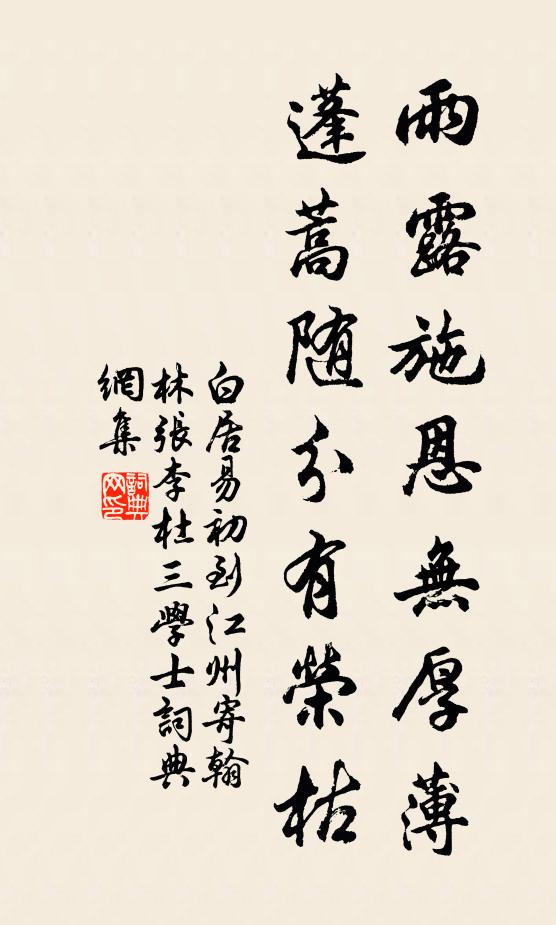 雨露施恩無厚薄
蓬蒿随分有榮枯
白居易初到江州寄翰
林張李杜三學士詞典
網集
詞典
网印